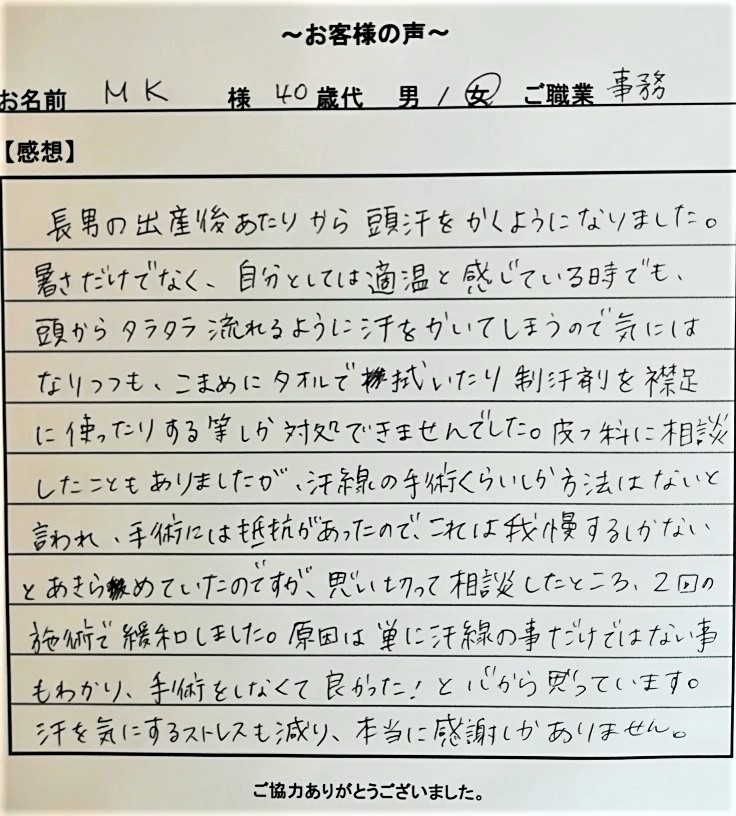 ～お客様の声～
お名前 MK 様 40歳代 男 / 女 ご職業 事務
【感想】
長男の出産後あたりから 頭汗をかくようになりました。
暑さだけでなく、自分としては適温と感じている時でも、
頭からタラタラ流れるように汗をかいてしまうので気には
なりつつも、こまめにタオルで拭いたり制汗剤を襟足
に使ったりする等しか対処できませんでした。皮フ科に相談
したこともありましたが、汗線の手術くらいしか方法はないと
言われ、手術には抵抗があったので、これは我慢するしかない
とあきらめていたのですが、思い切って相談したところ、2回の
施術で緩和しました。原因は単に汗線の事だけではない事
もわかり、手術をしなくて良かった！と心から思っています。
汗を気にするストレスも減り、本当に感謝しかありません。
ご協力ありがとうございました。